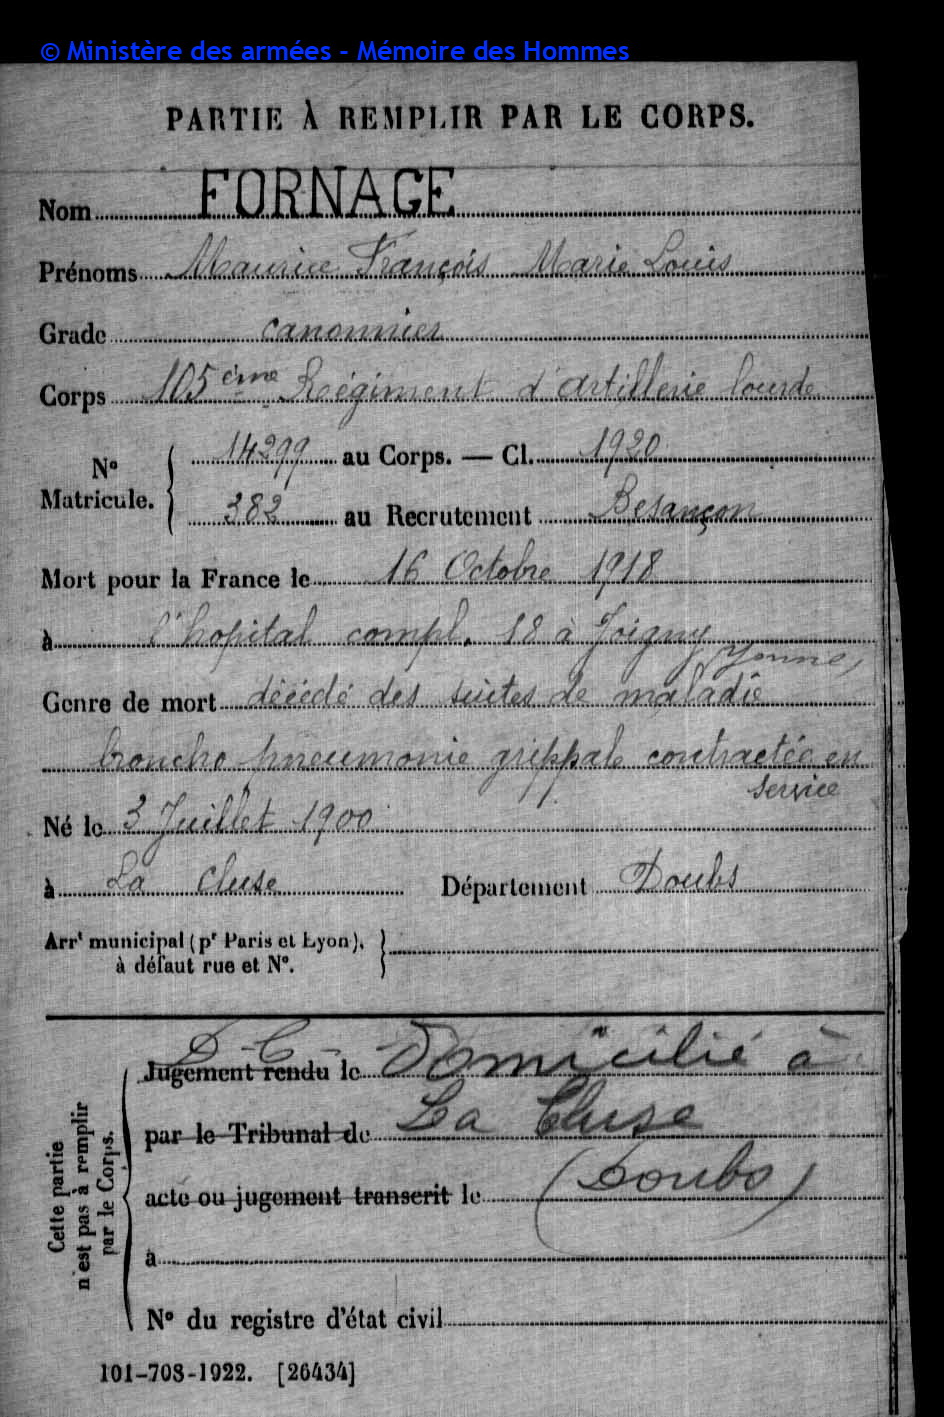 © Ministère des armées - Mémoire des Hommes
PARTIE À REMPLIR PAR LE CORPS.
Nom FORNAGE
Prénoms Maurice François Marie Louis
Grade canonnier
Corps 105ème Régiment d'artillerie lourde
N° Matricule. 14299 au Corps. — Cl. 1920
382 au Recrutement Besançon
Mort pour la France le 16 Octobre 1918
à l'hopital compl. 18 à Joigny
(Yonne)
Genre de mort décédé des suites de maladie
broncho pneumonie grippale contractée en
service
Né le 3 Juillet 1900
à La Cluse Département Doubs
Arrt municipal (pr Paris et Lyon),
à défaut rue et N°.
D-C- Domicilié à
Jugement rendu le
par le Tribunal de La Cluse
acte ou jugement transcrit le (Doubs)
à
N° du registre d'état civil
Cette partie
n'est pas à remplir
par le Corps.
101-708-1922. [26434]